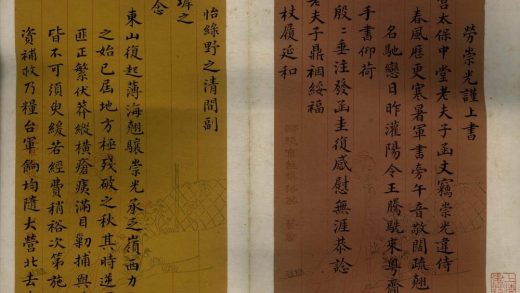 勞崇光謹上書
宮太保中堂老夫子函丈竊崇光違侍
春風歷更寒暑軍書旁午音敬闊疏翹
名馳戀日昨灌陽令王騰驍來粵齎
手書仰荷
殷殷垂注發函圭復感慰無涯恭諗
老夫子鼎祻綏福
杖履延和
怡綠野之清閒副
墀之
念
東山復起薄海翹驤崇光承乏嶺西力
之始已屆地方極殘破之秋其時逆
匪正繁伏莽縱橫瘡痍滿目勦捕與
皆不可須臾緩若經費稍裕次第施
資補救乃糧台軍餉均隨大營北去